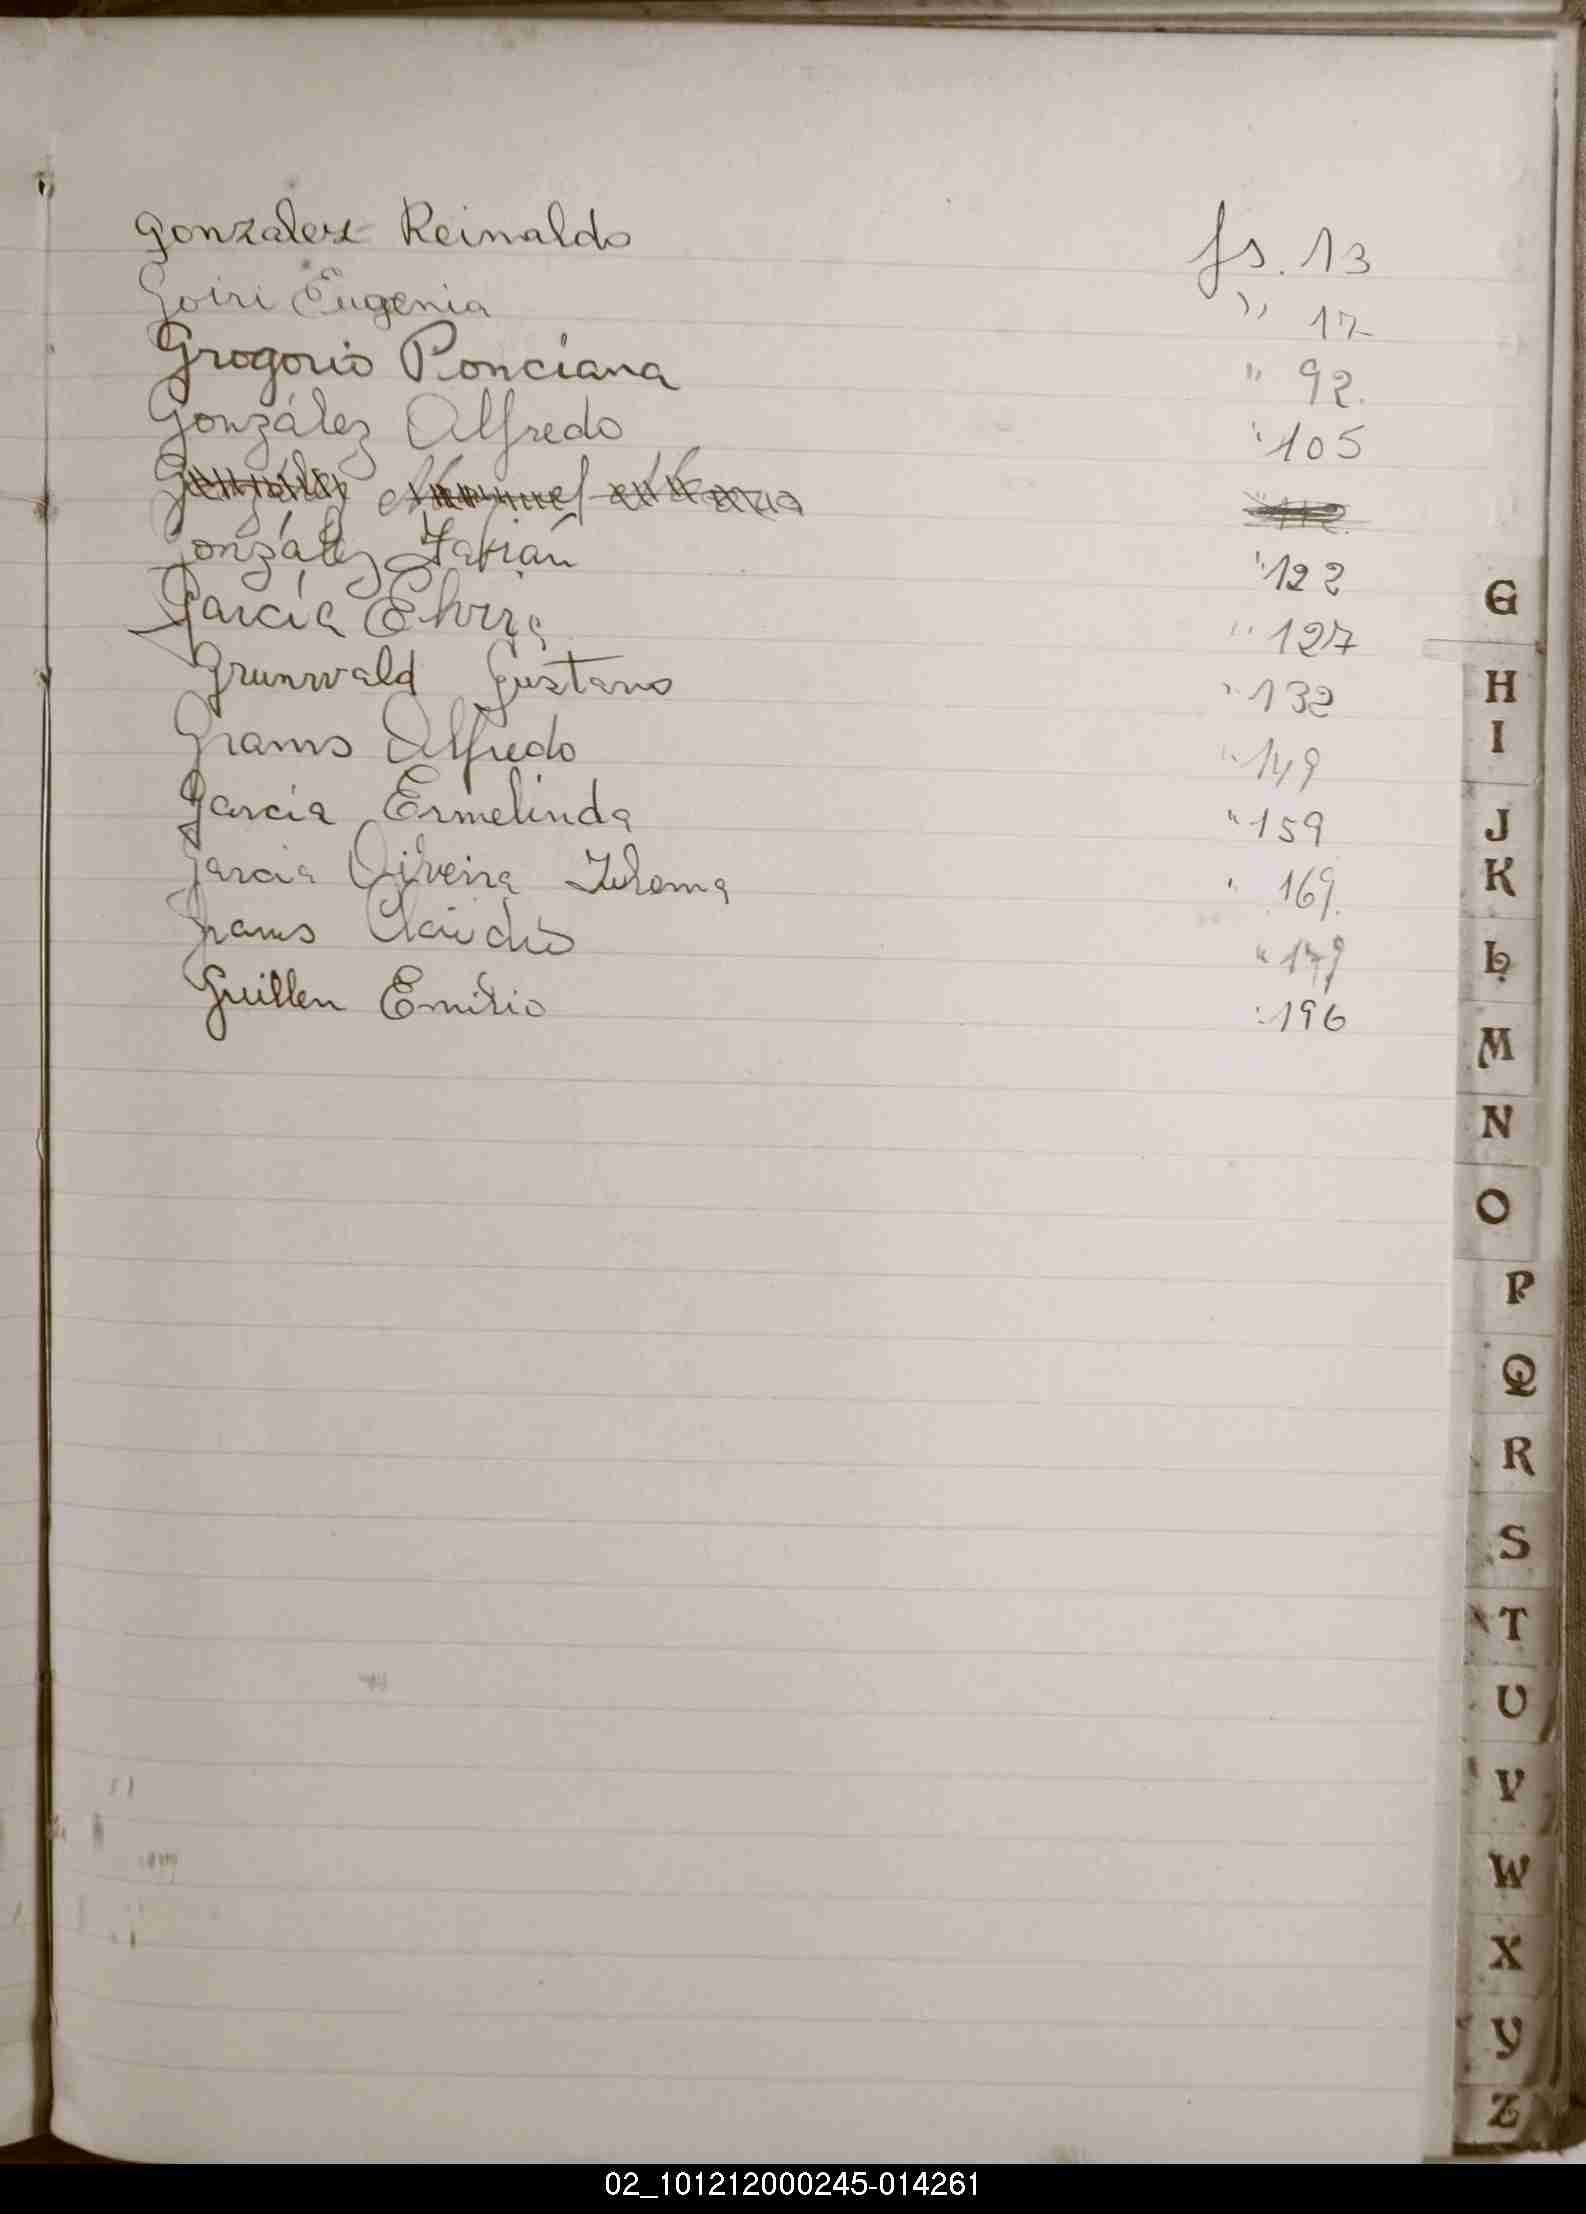 Gonzalez Reinaldo fs. 13
Goiri Eugenia " 17
Grogorio Ponciana " 92.
González Alfredo " 105
González Manuel 112.
González Fabián " 122
García Elvira " 127
Grunwald Gustavo " 132
Grams Alfredo " 149
García Ermelinda " 159
Garcia Oliveira " 169.
Grams Claudio " 179
Guillen Emilio " 196
G
H
I
J
K
L
M
N
O
P
Q
R
S
T
U
V
W
X
Y
Z
02_101212000245-014261